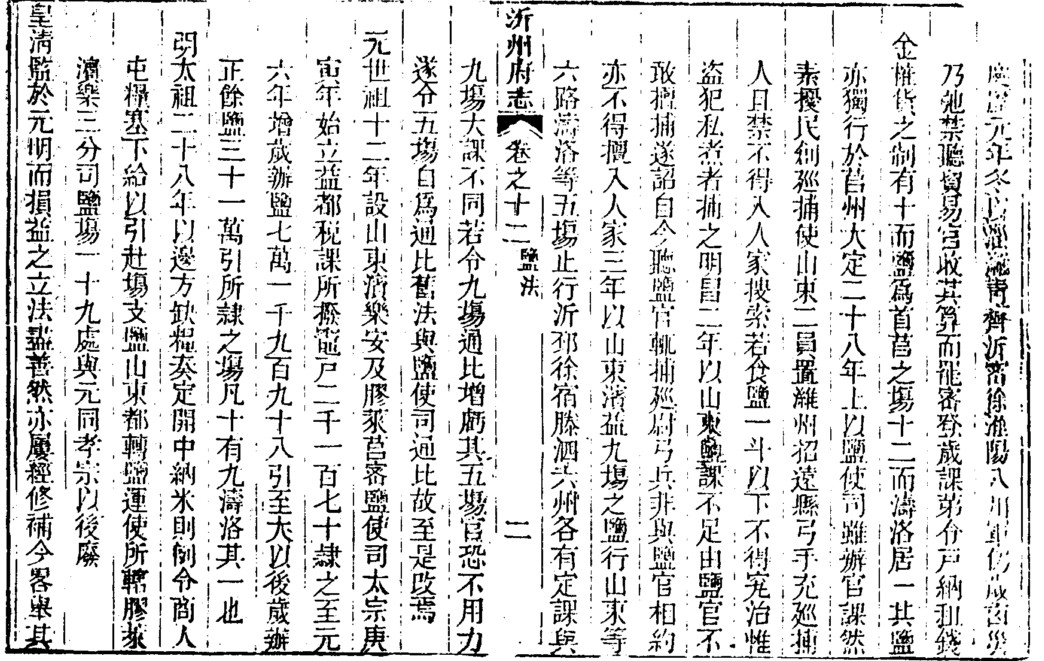 慶曆元年冬以淄濰青齊沂密徐淮陽八州軍仍歲凶災
乃弛禁聽貿易官收其算而罷密登歲課第令戶納租錢
金榷貨之制有十而鹽爲首莒之場十二而濤洛居一其鹽
亦獨行於莒州大定二十八年上以鹽使司雖辦官課然
素擾民創廵捕使山東二員置濰州招遠縣弓手充廵捕
人且禁不得入人家搜索若食鹽一斗以下不得究治惟
盜犯私者者捕之明昌二年以山東鹽課不足由鹽官不
敢擅捕遂詔自今聽鹽官輒捕廵尉弓兵非與鹽官相約
亦不得擅入人家三年以山東濱益九場之鹽行山東等
六路濤洛等五場止行沂邳徐宿滕泗六州各有定課與
沂州府志 卷之十二 鹽法 二
九場大課不同若令九場通比增虧其五場官恐不用力
遂令五場自爲通比舊法與鹽使司通比故至是改焉
元世祖十二年設山東濱樂安及膠萊莒密鹽使司太宗庚
寅年始立益都稅課所撥竈戶二千一百七十隸之至元
六年增歲辦鹽七萬一千九百九十八引至大以後歲辦
正餘鹽三十一萬引所隸之場凡十有九濤洛其一也
明太祖二十八年以邊方缺糧奏定開中納米則例令商人
屯糧塞下給以引赴場支鹽山東都轉鹽運使所轄膠萊
濱樂三分司鹽場一十九處與元同孝宗以後廢
皇清監於元明而損益之立法盡善然亦屢經修補今畧舉其